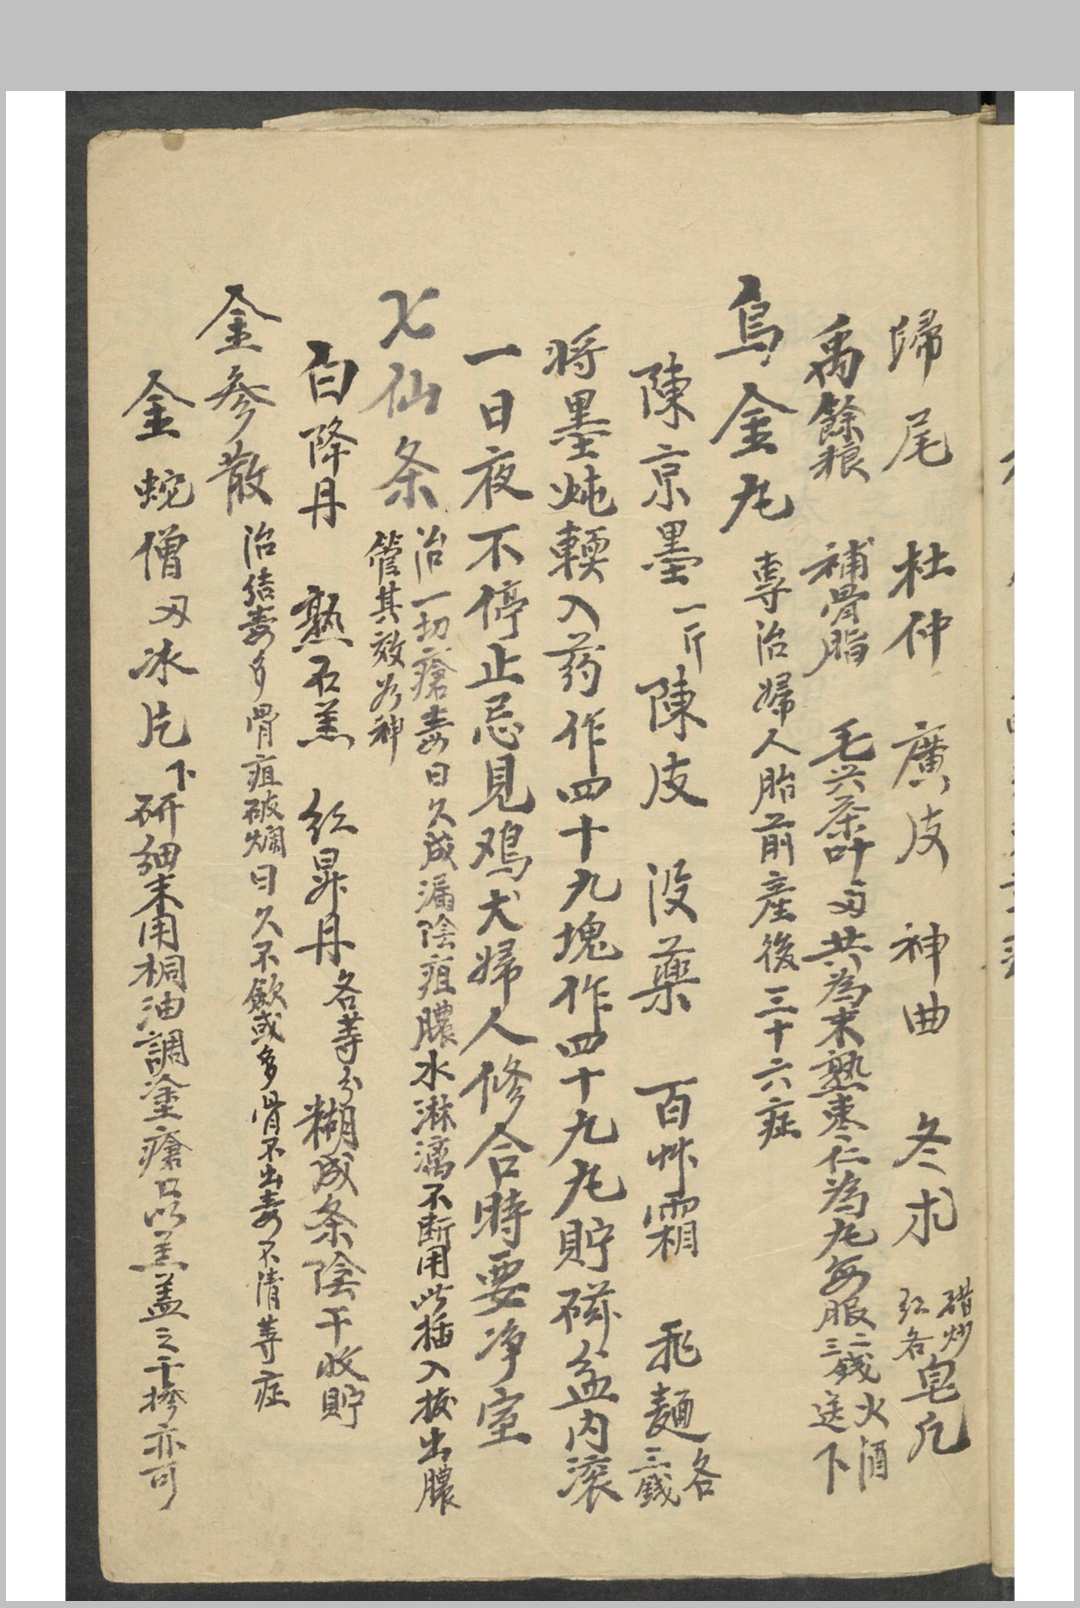 歸尾 杜仲 廣皮 神曲 冬术 醋炒 紅各 皂凡
禹餘粮 補骨脂 毛兴茶叶 共為末熟枣仁為丸每服二三錢火酒送下
烏金丸 専治婦人胎前產後三十六症
陳京墨一斤 陳皮 没藥 百艸霜 飛麵各三錢
将墨炖輭入药作四十九塊作四十九丸貯磁盆内滚
一日夜不停止忌見鸡犬婦人修合時要净室
七仙条 治一切瘡毒日久成漏陰疽膿水淋漓不断用此插入拔出膿
管其效如神
白降丹 熟石羔 紅昇丹各等分 糊成条陰干收貯
金参散 治结毒多骨疽破爛日久不歛或多骨不出毒不清等症
金蛇僧 冰片下 研細末用桐油調塗瘡口以羔盖之干掺亦可